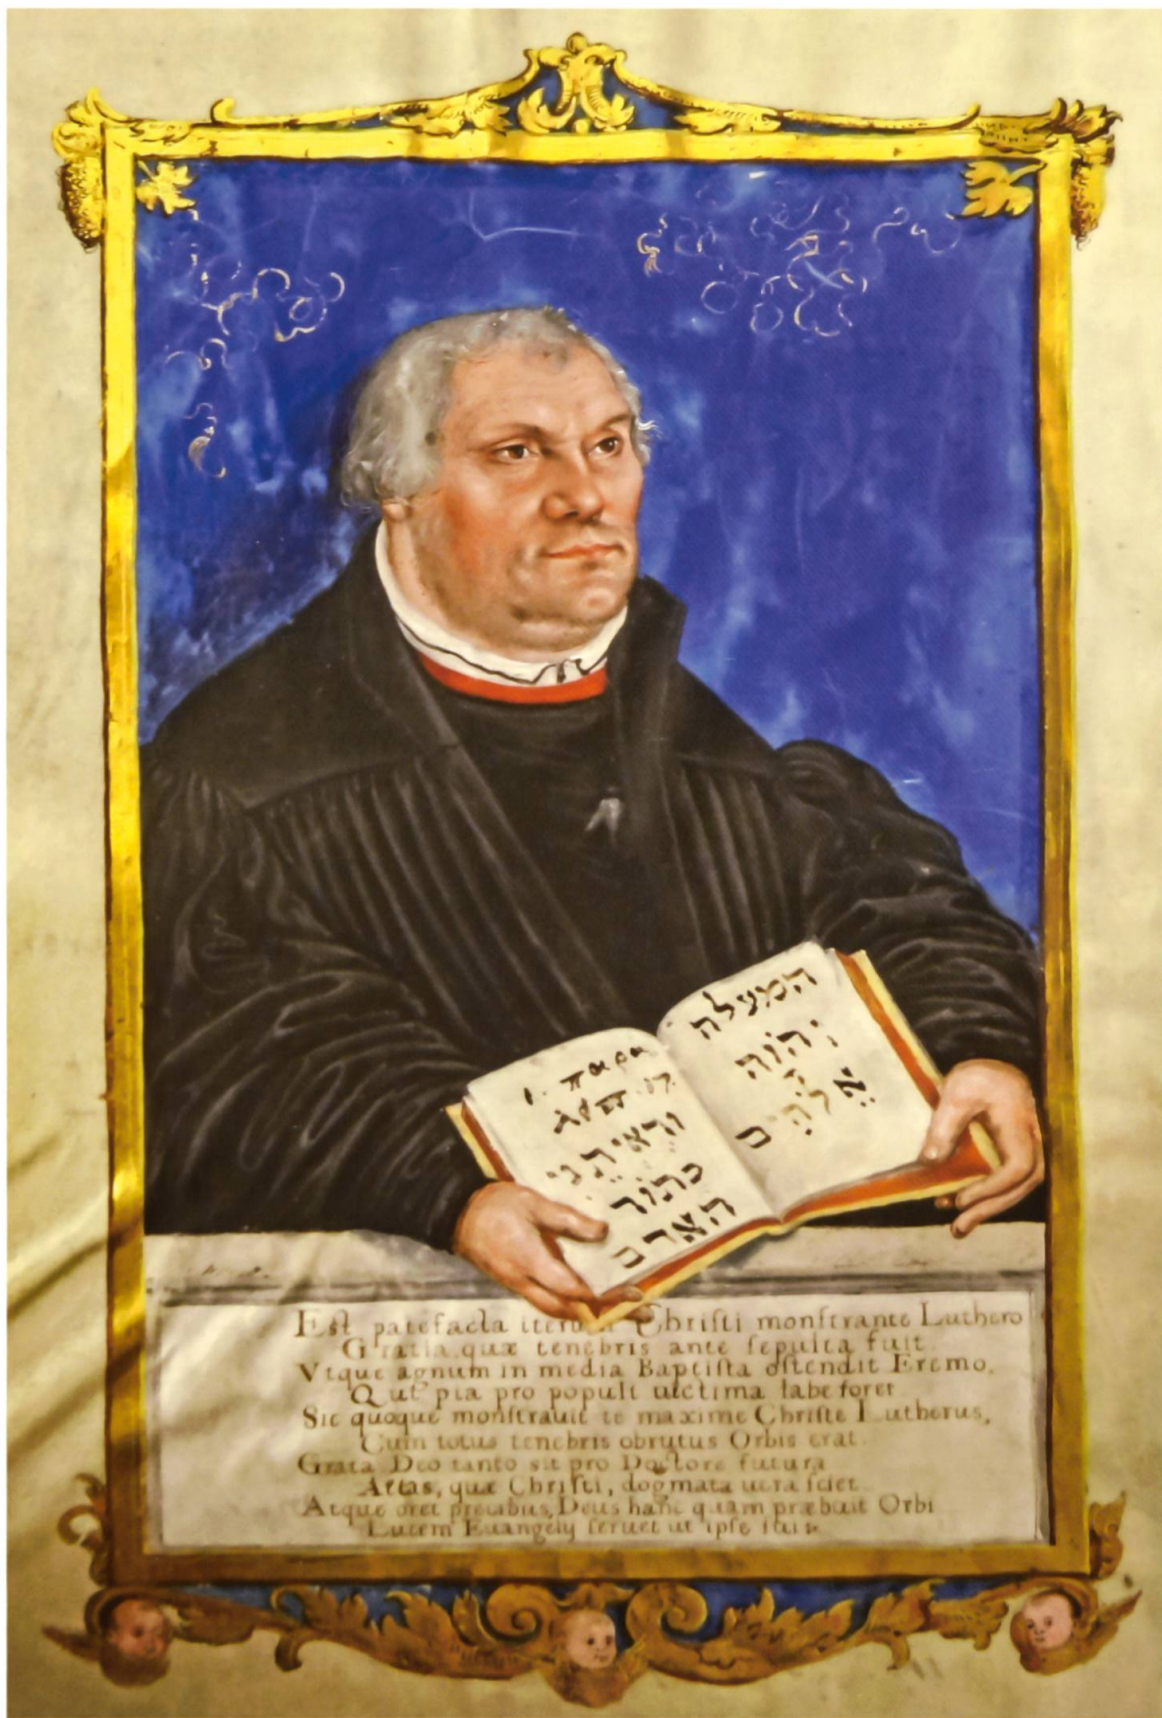 1. παρα
λειπ .17.
וראיתני
כתור
האדם
המעלה
יהוה
אלהים
Est patefacta iterum Chriſti monſtrante Luthero
Gratia quæ tenebris ante ſepulta fuit.
Vtque agnum in media Baptiſta oſtendit Eremo.
Qui pia pro populi uictima labe foret
Sic quoque monſtrauit te maxime Chriſte Lutherus,
Cum totus tenebris obrutus Orbis erat.
Grata Deo tanto sit pro Doctore futura
Aetas, quæ Chriſti, dogmata uera ſciet.
Atque oret precibus, Deus hanc quam præbuit Orbi
Lucem Euangely ſeruet ut ipſe ſuis